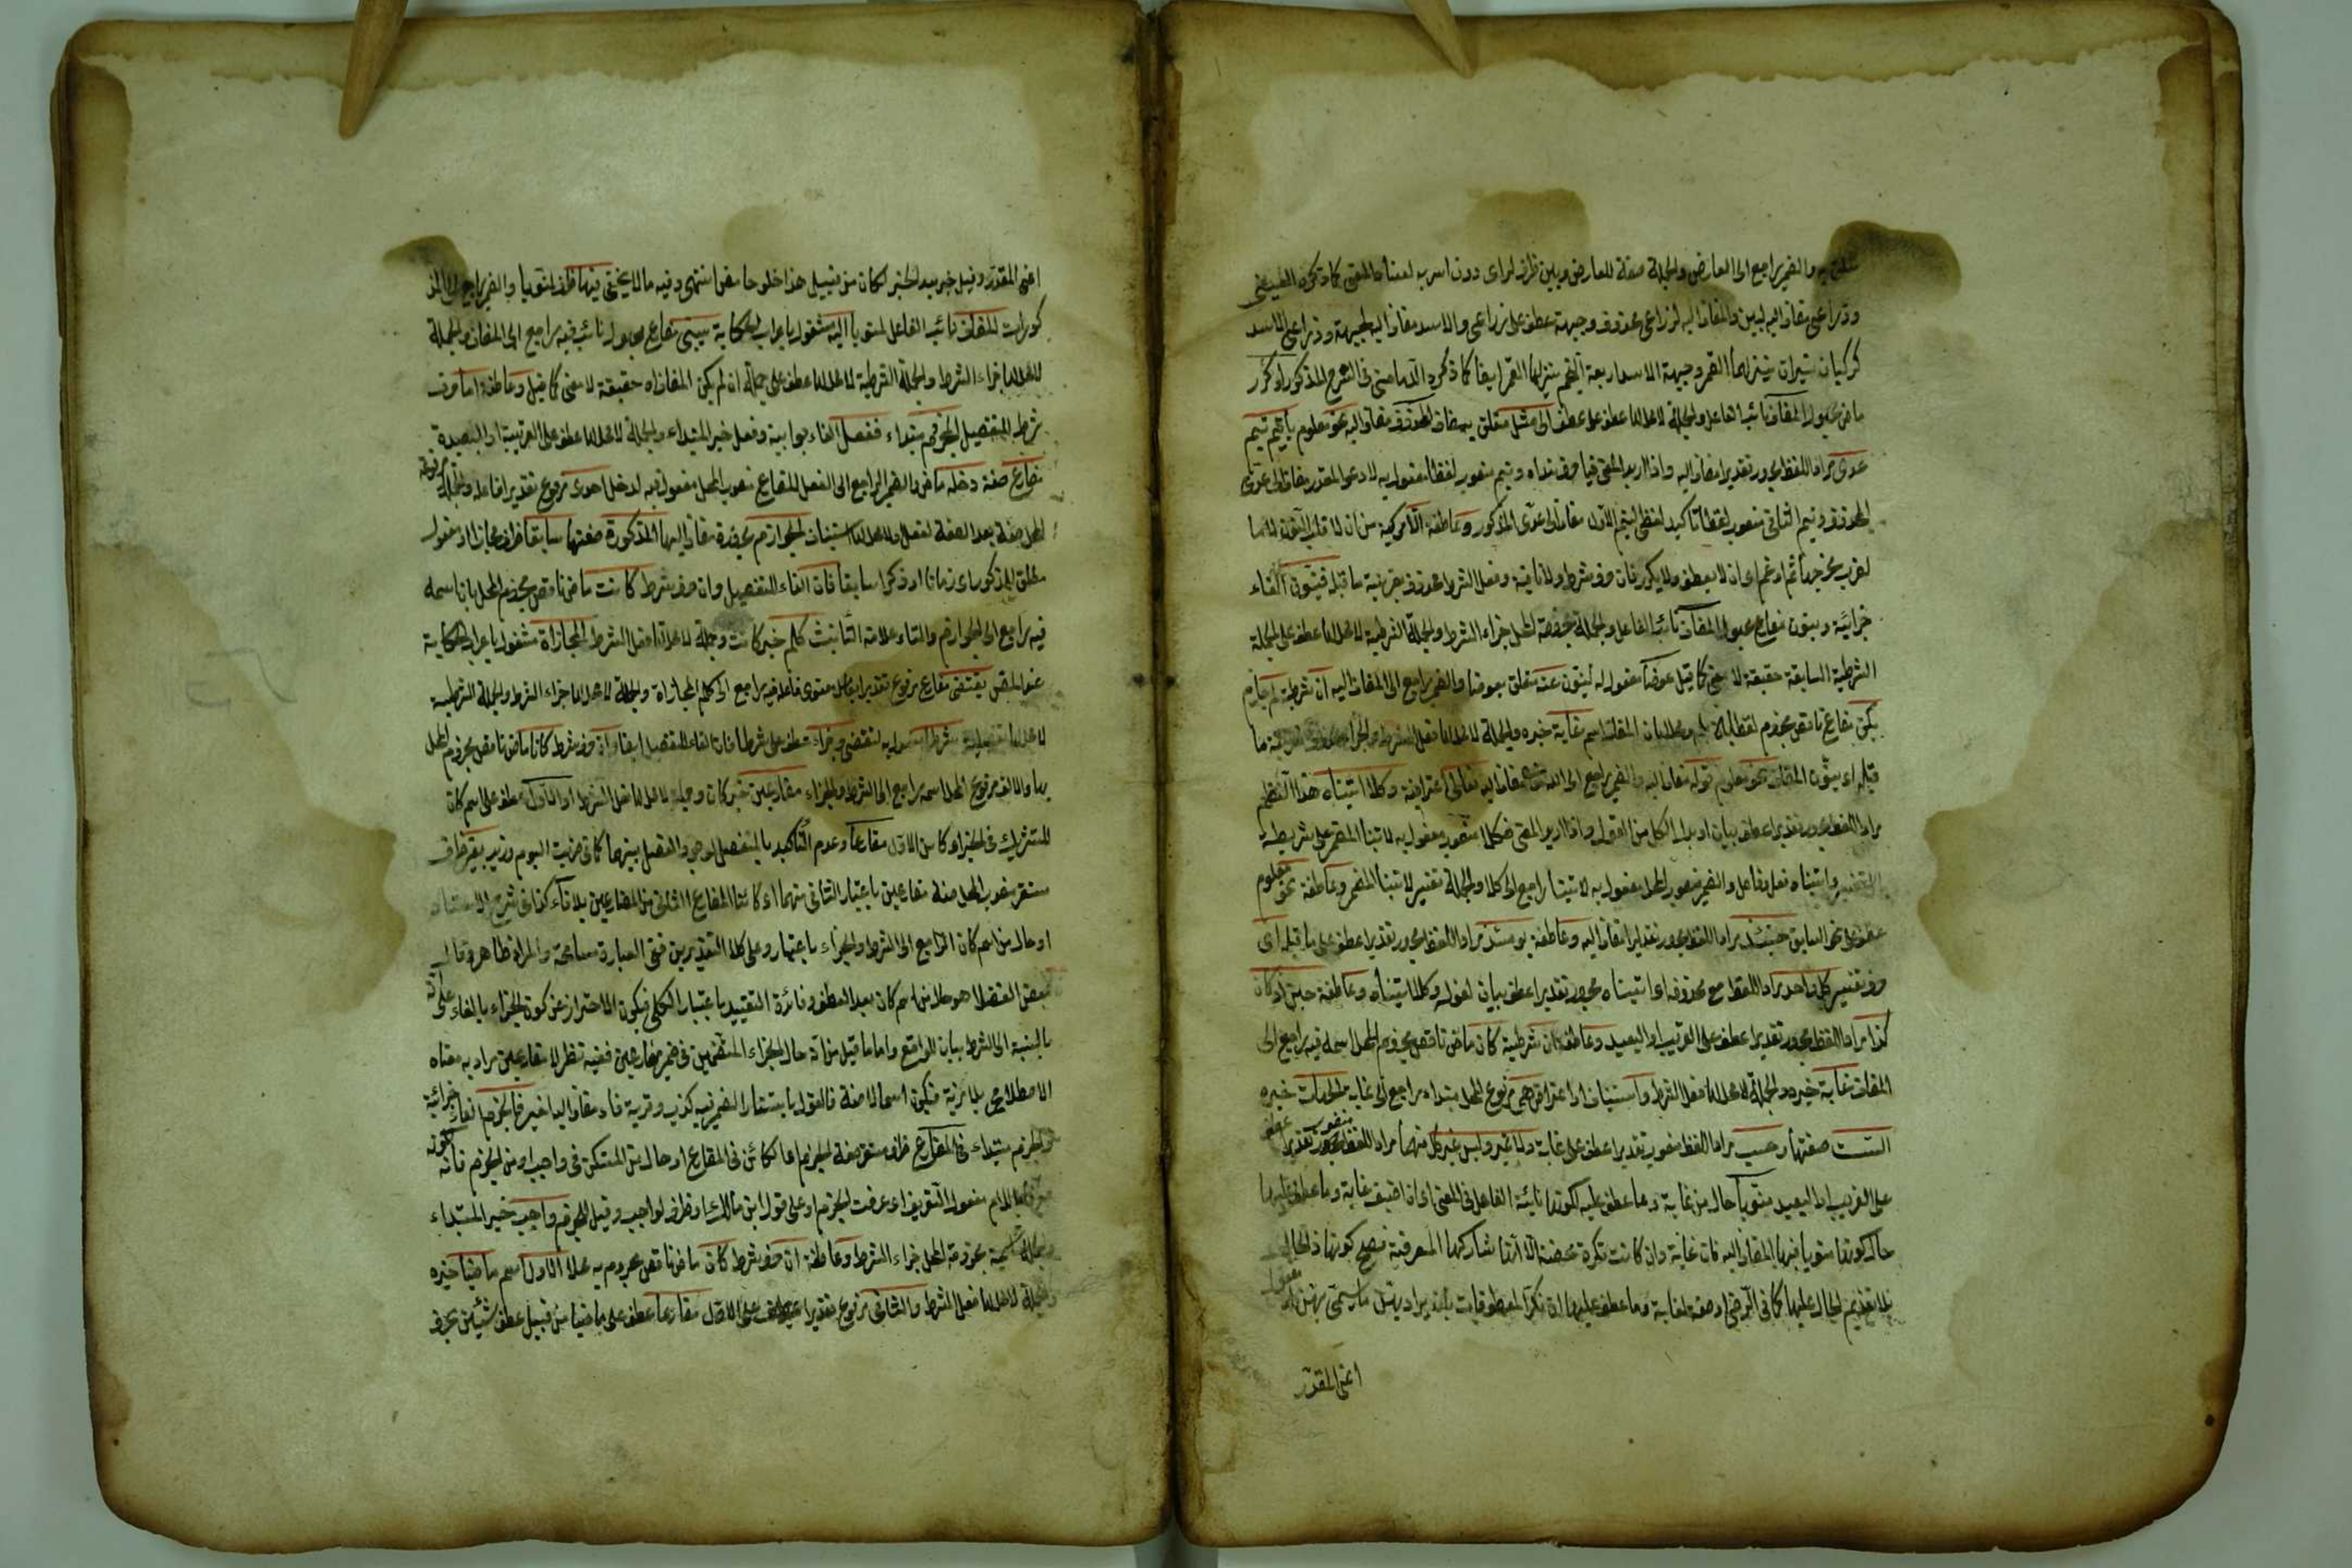 به والضمير راجع الى العارض والجملة صفة للعارض وبين ظرف لراى دون اسر به لفساد المعنى كما ذكره العينى
وذراعى مضاف اليه لبين والمضاف اليه لذراعى محذوف وجبهة عطف على ذراعى والاسد مضاف اليه لجبهة وذراعى الاسد
كوكبان نيران ينزلهما القمر وجبهة الاسد اربعة انجم ينزلها القمر ايضا كما ذكره الدمامينى فى الشرح المذكور او كرر
ماض مجهول المضاف نائب الفاعل والجملة لا محل لها عطف على عطف الى مثل متعلق بمضاف المحذوف مضاف اليه نحو معلوم يا تيم تيم
عدى مراد اللفظ مجرور تقديرا مضاف اليه واذا اريد المعنى فيا حرف نداء وتيم منصوب لفظا مفعول به لادعو المقدر مضاف الى عدى
المحذوف وتيم الثانى منصوب لفظا تاكيد لفظى لتيم الاول مضاف الى عدى المذكور وعاطفة الا مركبة من ان لا قلب النون لاما
لقرب مخرجهما ثم ادغم اى ان لا يعطف ولا يكرر فان حرف شرط ولا نافية وفعل الشرط محذوف بقرينة ما قبله فينون الفاء
جزائية وينون مضارع مجهول المضاف نائب الفاعل والجملة مجزومة المحل جزاء الشرط والجملة الشرطية لا محل لها عطف على الجملة
الشرطية السابقة حقيقة لا معنى كما قيل عوضا مفعول له لينون عنه متعلق بعوضا والضمير راجع الى المضاف اليه ان شرطية لم جازم
يكن مضارع ناقص مجزوم لفظا به المضاف اسم غاية خبره والجملة لا محل لها فعل الشرط والجزاء ما
قبله اى ينون المضاف نحو معلوم قوله مضاف اليه والضمير راجع الى الله مضاف اليه تعالى اعتراضية وكلا اتيناه هذا النظم
مراد اللفظ مجرور تقديرا عطف بيان او بدل الكل من القول واذا اريد المعنى فكلا منصوب مفعول به لاتينا المضمر على شريطة
التفسير واتيناه فعل وفاعل والضمير منصوب المحل مفعول به لاتينا راجع الى كلا والجملة تفسير لاتينا المضمر وعاطفة نحو معلوم
عطف على نحو السابق حينئذ مراد اللفظ مجرور تقديرا مضاف اليه وعاطفة يومئذ مراد اللفظ مجرور تقديرا عطف على ما قبله اى
حرف تفسير كل واحد مراد اللفظ مع محذوفه اى اتيناه مجرور تقديرا عطف بيان لقوله وكلا اتيناه وعاطفة حين اذ كان
كذا مراد اللفظ مجرور تقديرا عطف على القريب او البعيد وعاطفة ان شرطية كان ماض ناقص مجزوم المحل اسمه فيه راجع الى
المضاف غاية خبره والجملة لا محل لها فعل الشرط واستئناف او اعتراض هى مرفوع المحل مبتداء راجع الى غاية الجهات خبره
الست صفتها وحسب مراد اللفظ منصوب تقديرا عطف على غاية ولا غير وليس غير كل منهما مراد اللفظ منصوب تقديرا عطف
على القريب او البعيد منويا حال من غاية وما عطف عليه لكونها نائبة الفاعل فى المعنى اى ان اضيف غاية وما عطف عليها
حال كونها منويا فيها المضاف اليه فان غاية وان كانت نكرة محضة الا انها شاركها المعرفة فيصح كونها ذا الحال
بلا تقديم الحال عليها كما فى الرضى او صفة لغاية وما عطف عليها
اعنى المقدر
اعنى المقدر وقيل خبر بعد الخبر لكان من قبيل هذا حلو حامض انتهى وفيه ما لا يخفى فيها ظرف لمنويا والضمير راجع الى المذ
كورات المضاف نائب الفاعل لمنويا اليه مشغول باعراب الحكاية يبنى مضارع مجهول نائبه فيه راجع الى المضاف والجملة
لا محل لها جزاء الشرط والجملة الشرطية لا محل لها عطف على جملة ان لم يكن المضاف اه حقيقة لا معنى كما قيل وعاطفة اما حرف
شرط للتفصيل الجوازم مبتداء ففصل الفاء جوابية وفعل خبر المبتداء والجملة لا محل لها عطف على القريبة او البعيدة
مضارع صفة دخله ماض والضمير الراجع الى الفعل المضارع منصوب المحل مفعول فيه لدخل احدى مرفوع تقديرا فاعله والجملة مرفوعة
المحل صفة بعد الصفة لفعل ولا محل لها استيناف الجوازم مجرورة مضاف اليها المذكورة صفتها سابقا ظرف مجازا او مفعول
مطلق للمذكور اى زمانا او ذكرا سابقا فان الفاء للتفصيل وان حرف شرط كانت ماض ناقص مجزوم المحل بان اسمه
فيه راجع الى الجوازم والتاء علامة التانيث كلم خبر كانت وجملة لا محل لها فعل الشرط المجازاة مشغول باعراب الحكاية
عند المص يقتضى مضارع مرفوع تقديرا بعامل معنوى فاعله فيه راجع الى كلم المجازاة والجملة لا محل لها جزاء الشرط والجملة الشرطية
لا محل لها تفصيلية شرطا مفعول به لتقتضى وجزاء عطف على شرطا فان الفاء للتفصيل ايضا وان حرف شرط كانا ماض ناقص مجزوم المحل
بها والالف مرفوع المحل اسمه راجع الى الشرط والجزاء مضارعين خبر كان وجملة لا محل لها فعل الشرط او الاول عطف على اسم كان
المشترك فى الخبر اى كان الاول مضارعا وعدم التاكيد بالمنفصل لوجود الفصل بينهما كما فى ضربت اليوم وزيد بغير ظرف
مستقر منصوب المحل صفة مضارعين باعتبار الثانى منهما اى كائنا المضارع الثانى من المضارعين بلا فاء كذا فى شرح
او حال من اسم كان الراجع الى الشرط والجزاء باعتبار وعلى كلا التقديرين فى العبارة مسامحة والمراد ظاهر وقال
بعض الفضلاء هو حال من اسم كان بعد العطف وفائدة التقييد باعتبار الكل فيكون الاحتراز عن كون الجزاء بالفاء على انه
بالنسبة الى الشرط بيان للواقع واما ما قيل من انه حال الجزاء المتضمن فى ضمير مضارعين ففيه نظر لان مضارعين مراد به معناه
الاصطلاحى بلا مرية فيكون اسما لا صفة فالقول باستتار الضمير فيه كذب وفرية فا مضاف اليه لغير فالجزم الفاء جزائية
والجزم مبتداء فى المضارع ظرف مستقر صفة الجزم اى الكائن فى المضارع او حال من المستكن فى واجب او من الجزم فانه لكونه
معرفا باللام مفعول التعريف اى عرفت الجزم او على قول ابن مالك او ظرف لواجب وقيل للجزم واجب خبر المبتداء
والجملة اسمية مجزومة المحل جزاء الشرط وعاطفة ان حرف شرط كان ماض ناقص مجزوم به محلا الاول اسمه ماضيا خبره
والجملة لا محل لها فعل الشرط والثانى مرفوع تقديرا عطف على الاول مضارعا عطف على ماضيا من قبيل عطف شيئين بحرف